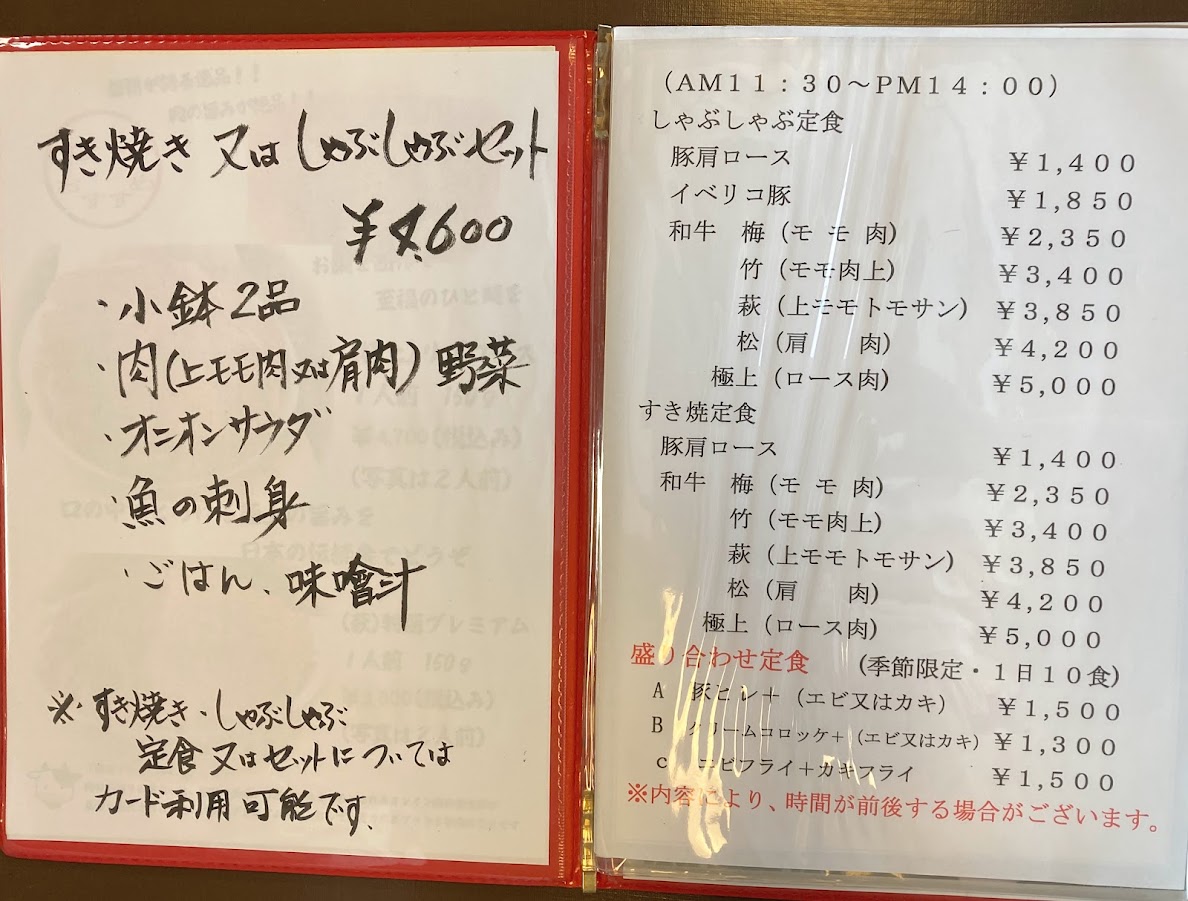 すき焼き 又は しゃぶしゃぶセット
・小鉢2品
・肉(上モモ肉又は肩肉)野菜
・オニオンサラダ
・魚の刺身
・ごはん、味噌汁
※ すき焼き・しゃぶしゃぶ
定食又はセットについては
カード利用可能です.
（AM11：30～PM14：00）
しゃぶしゃぶ定食
豚肩ロース ￥1,400
イベリコ豚 ￥1,850
和牛 梅（モ モ 肉） ￥2,350
竹（モモ肉上） ￥3,400
萩（上モモトモサン） ￥3,850
松（肩 肉） ￥4,200
極上（ロース肉） ￥5,000
すき焼定食
豚肩ロース ￥1,400
和牛 梅（モ モ 肉） ￥2,350
竹（モモ肉上） ￥3,400
萩（上モモトモサン） ￥3,850
松（肩 肉） ￥4,200
極上（ロース肉） ￥5,000
盛り合わせ定食 （季節限定・1日10食）
A 豚ヒレ＋（エビ又はカキ） ￥1,500
B クリームコロッケ＋（エビ又はカキ） ￥1,300
c エビフライ＋カキフライ ￥1,500
※内容により、時間が前後する場合がございます。